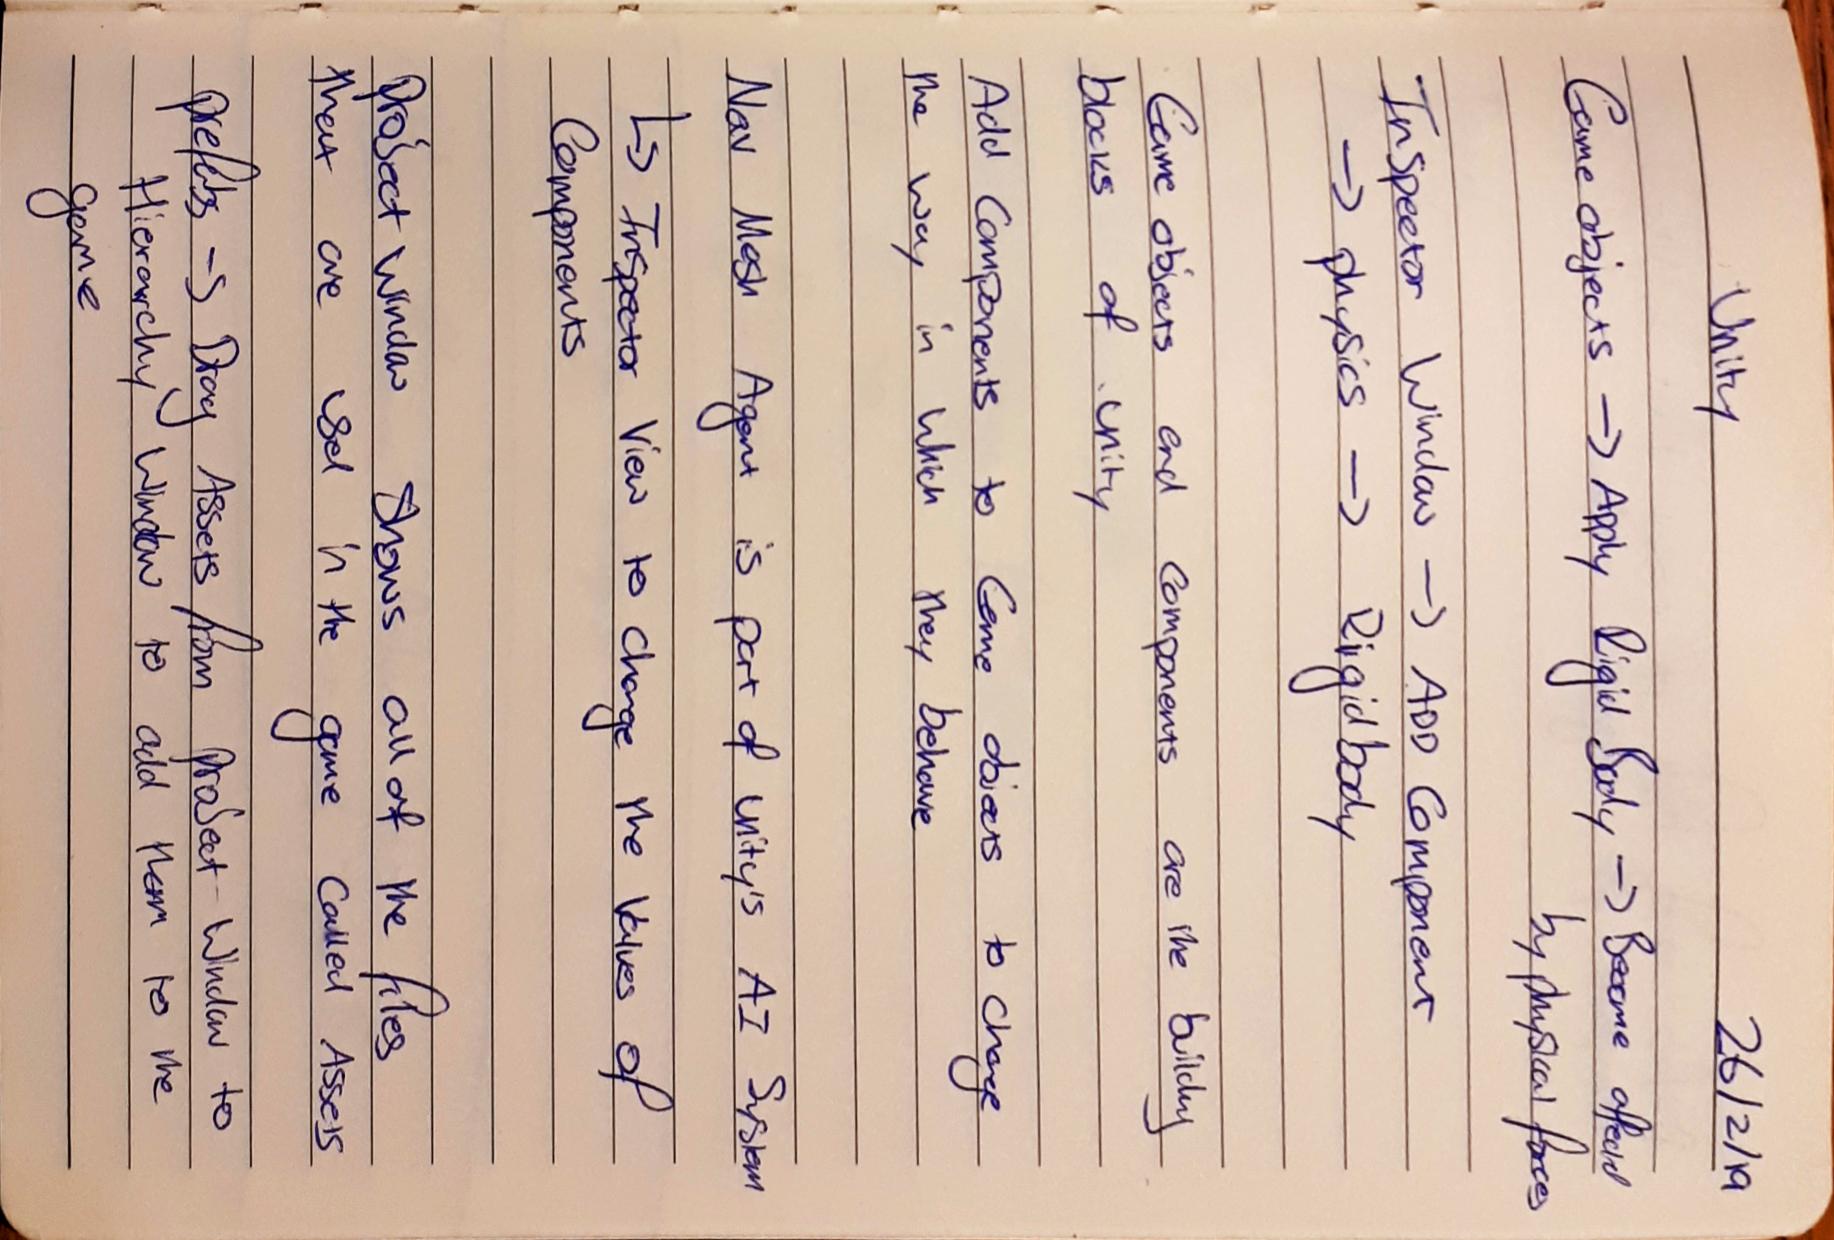 Unity 26/2/19
Game objects → Apply Rigid Body → Become affected
by physical forces
Inspector Window → ADD Component
→ physics → Rigidbody
Game objects and components are the building
blocks of unity
Add Components to Game objects to change
the way in which they behave
Nav Mesh Agent is part of unity's AI System
↳ Inspector View to change the Values of
Components
Project Window Shows all of the files
that are used in the game Called Assets
Prefabs → Drag Assets from Project Window to
Hierarchy Window to add them to the
game